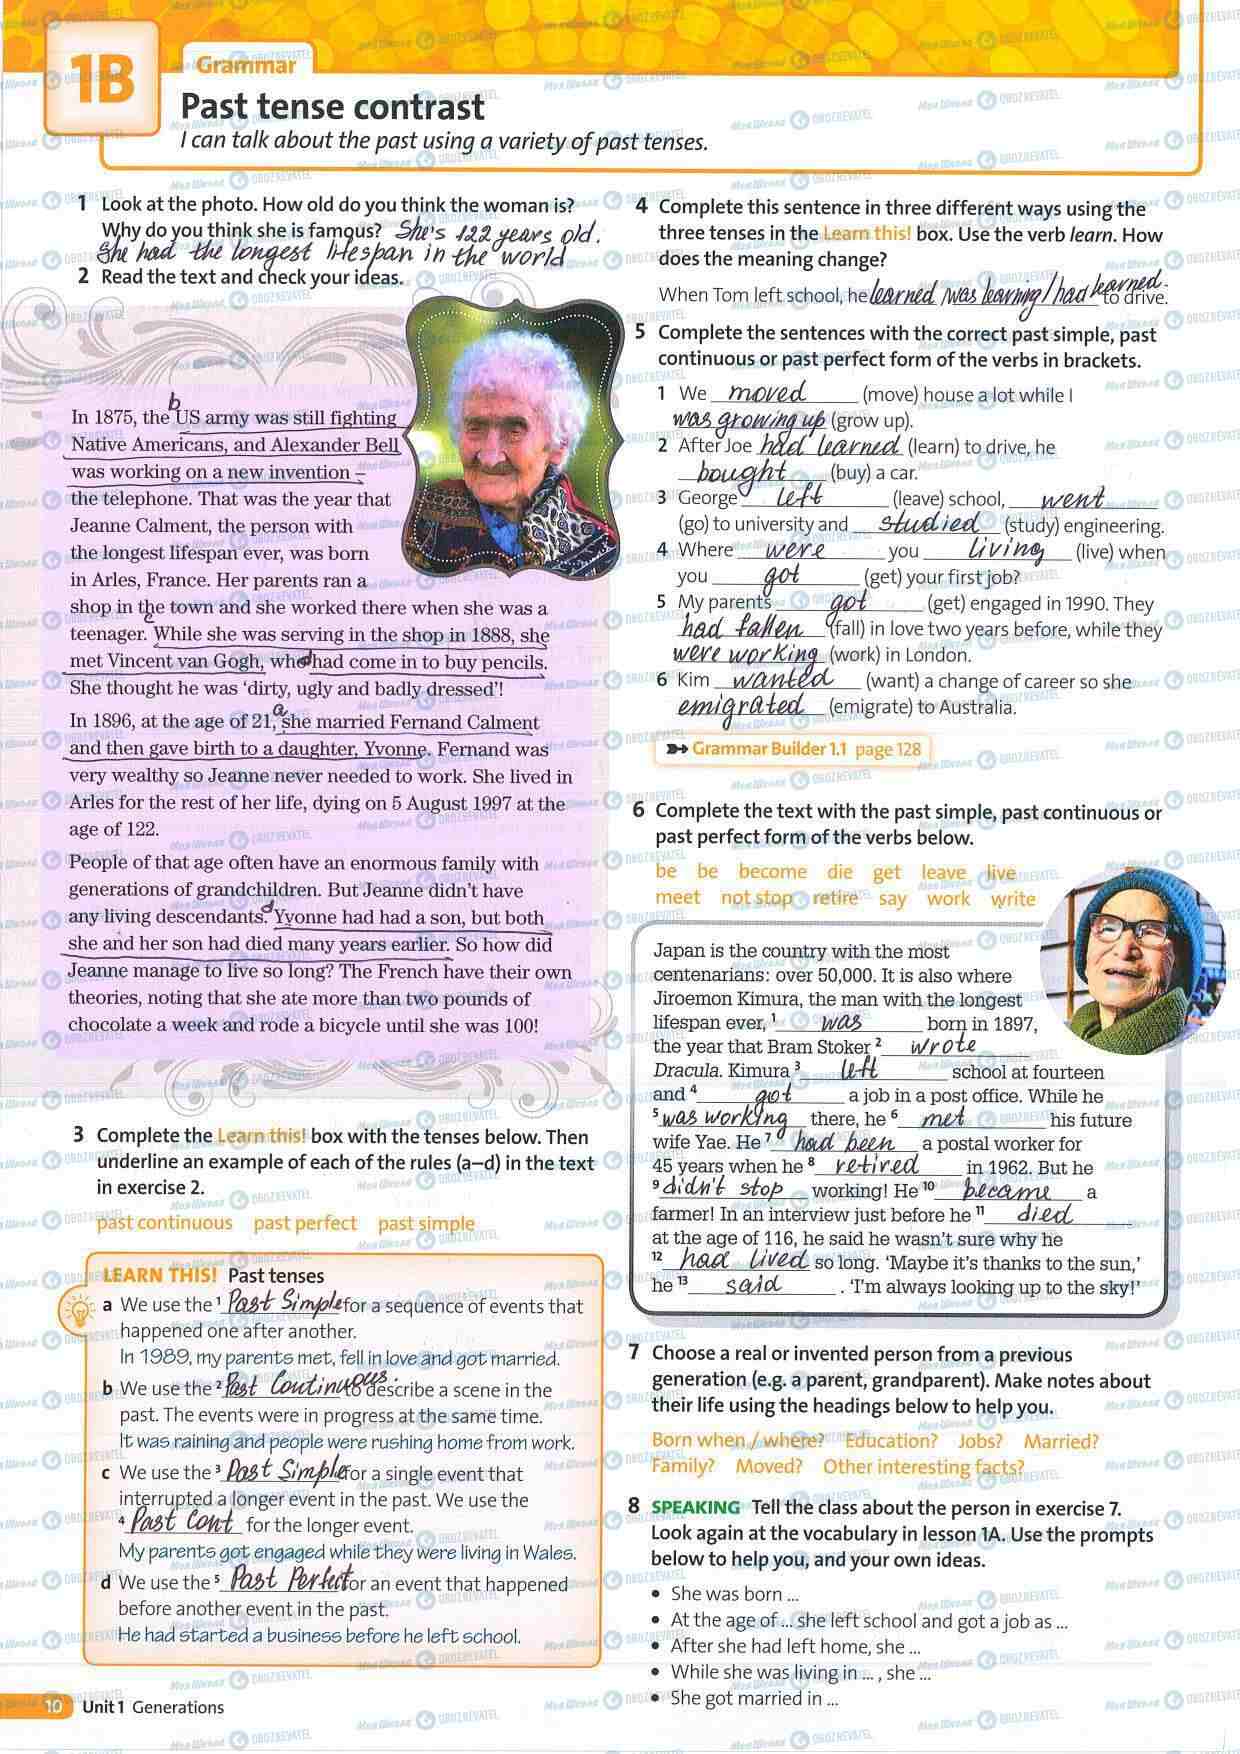 1B
Grammar
Past tense contrast
I can talk about the past using a variety of past tenses.
1 Look at the photo. How old do you think the woman is?
Why do you think she is famous? She's 122 years old.
She had the longest lifespan in the world
2 Read the text and check your ideas.
b
In 1875, the US army was still fighting
Native Americans, and Alexander Bell
was working on a new invention –
the telephone. That was the year that
Jeanne Calment, the person with
the longest lifespan ever, was born
in Arles, France. Her parents ran a
shop in the town and she worked there when she was a
c
teenager. While she was serving in the shop in 1888, she
met Vincent van Gogh, who had come in to buy pencils.
d
She thought he was 'dirty, ugly and badly dressed'!
a
In 1896, at the age of 21, she married Fernand Calment
and then gave birth to a daughter, Yvonne. Fernand was
very wealthy so Jeanne never needed to work. She lived in
Arles for the rest of her life, dying on 5 August 1997 at the
age of 122.
People of that age often have an enormous family with
generations of grandchildren. But Jeanne didn't have
d
any living descendants. Yvonne had had a son, but both
she and her son had died many years earlier. So how did
Jeanne manage to live so long? The French have their own
theories, noting that she ate more than two pounds of
chocolate a week and rode a bicycle until she was 100!
3 Complete the Learn this! box with the tenses below. Then
underline an example of each of the rules (a–d) in the text
in exercise 2.
past continuous past perfect past simple
LEARN THIS! Past tenses
a We use the 1 Past Simple for a sequence of events that
happened one after another.
In 1989, my parents met, fell in love and got married.
b We use the 2 Past Continuous to describe a scene in the
past. The events were in progress at the same time.
It was raining and people were rushing home from work.
c We use the 3 Past Simple for a single event that
interrupted a longer event in the past. We use the
4 Past Cont for the longer event.
My parents got engaged while they were living in Wales.
d We use the 5 Past Perfect for an event that happened
before another event in the past.
He had started a business before he left school.
10 Unit 1 Generations
4 Complete this sentence in three different ways using the
three tenses in the Learn this! box. Use the verb learn. How
does the meaning change?
When Tom left school, he learned / was learning / had learned to drive.
5 Complete the sentences with the correct past simple, past
continuous or past perfect form of the verbs in brackets.
1 We moved (move) house a lot while I
was growing up (grow up).
2 After Joe had learned (learn) to drive, he
bought (buy) a car.
3 George left (leave) school, went
(go) to university and studied (study) engineering.
4 Where were you living (live) when
you got (get) your first job?
5 My parents got (get) engaged in 1990. They
had fallen (fall) in love two years before, while they
were working (work) in London.
6 Kim wanted (want) a change of career so she
emigrated (emigrate) to Australia.
Grammar Builder 1.1 page 128
6 Complete the text with the past simple, past continuous or
past perfect form of the verbs below.
be be become die get leave live
meet not stop retire say work write
Japan is the country with the most
centenarians: over 50,000. It is also where
Jiroemon Kimura, the man with the longest
lifespan ever, 1 was born in 1897,
the year that Bram Stoker 2 wrote
Dracula. Kimura 3 left school at fourteen
and 4 got a job in a post office. While he
5 was working there, he 6 met his future
wife Yae. He 7 had been a postal worker for
45 years when he 8 retired in 1962. But he
9 didn't stop working! He 10 became a
farmer! In an interview just before he 11 died
at the age of 116, he said he wasn't sure why he
12 had lived so long. 'Maybe it's thanks to the sun,'
he 13 said. 'I'm always looking up to the sky!'
7 Choose a real or invented person from a previous
generation (e.g. a parent, grandparent). Make notes about
their life using the headings below to help you.
Born when / where? Education? Jobs? Married?
Family? Moved? Other interesting facts?
8 SPEAKING Tell the class about the person in exercise 7.
Look again at the vocabulary in lesson 1A. Use the prompts
below to help you, and your own ideas.
• She was born ...
• At the age of ... she left school and got a job as ...
• After she had left home, she ...
• While she was living in ... , she ...
• She got married in ...
Моя Школа OBOZREVATEL